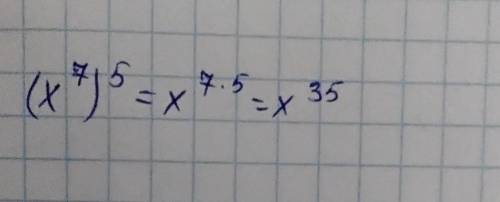 (x⁷)⁵ = x⁷·⁵ = x³⁵